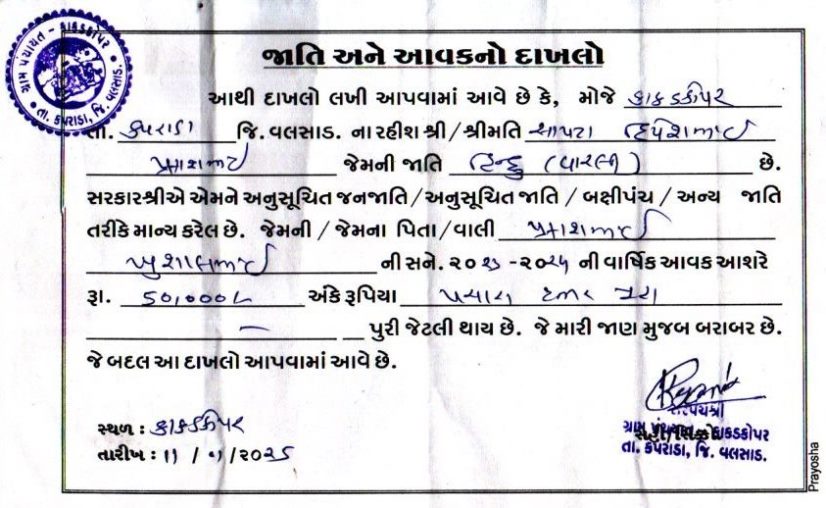 ગ્રામ પંચાયત - કાકડકોપર
તા. કપરાડા, જિ. વલસાડ.
જાતિ અને આવકનો દાખલો
આથી દાખલો લખી આપવામાં આવે છે કે, મોજે કાકડકોપર
તા. કપરાડા જિ. વલસાડ. ના રહીશ શ્રી / શ્રીમતિ
જેમની જાતિ હિન્દુ (વારલી) છે.
સરકારશ્રીએ એમને અનુસૂચિત જનજાતિ / અનુસૂચિત જાતિ / બક્ષીપંચ / અન્ય જાતિ
તરીકે માન્ય કરેલ છે. જેમની / જેમના પિતા / વાલી
ખુશાલભાઈ ની સને. ૨૦૨૩ - ૨૦૨૪ ની વાર્ષિક આવક આશરે
રૂા. ૫૦,૦૦૦/- અંકે રૂપિયા પચાસ હજાર પુરા
પુરી જેટલી થાય છે. જે મારી જાણ મુજબ બરાબર છે.
જે બદલ આ દાખલો આપવામાં આવે છે.
સ્થળ : કાકડકોપર
તારીખ : ૧૧ / ૧ / ૨૦૨૫
સરપંચશ્રી
ગ્રામ પંચાયત - કાકડકોપર
તા. કપરાડા, જિ. વલસાડ.
Prayosha